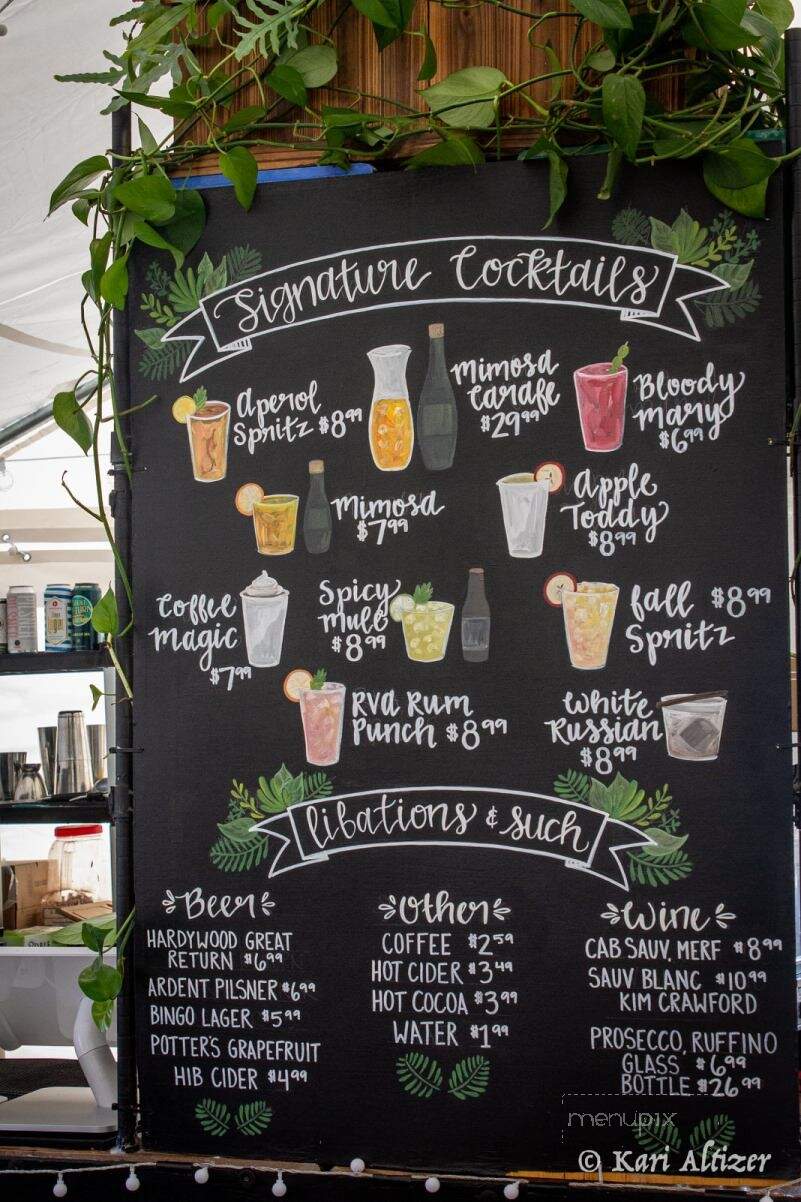 Signature Cocktails
Aperol
Spritz $8.99
Mimosa
Carafe
$29.99
Bloody
Mary
$6.99
Mimosa
$7.99
Apple
Toddy
$8.99
Coffee
Magic
$7.99
Spicy
Mule
$8.99
Fall $8.99
Spritz
RVA Rum
Punch $8.99
White
Russian
$8.99
libations & such
Beer
HARDYWOOD GREAT
RETURN $6.99
ARDENT PILSNER $6.99
BINGO LAGER $5.99
POTTER'S GRAPEFRUIT
HIB CIDER $4.99
Other
COFFEE $2.59
HOT CIDER $3.49
HOT COCOA $3.99
WATER $1.99
Wine
CAB SAUV, MERF $8.99
SAUV BLANC $10.99
KIM CRAWFORD
PROSECCO, RUFFINO
GLASS $6.99
BOTTLE $26.99
menupix
© Kari Altizer